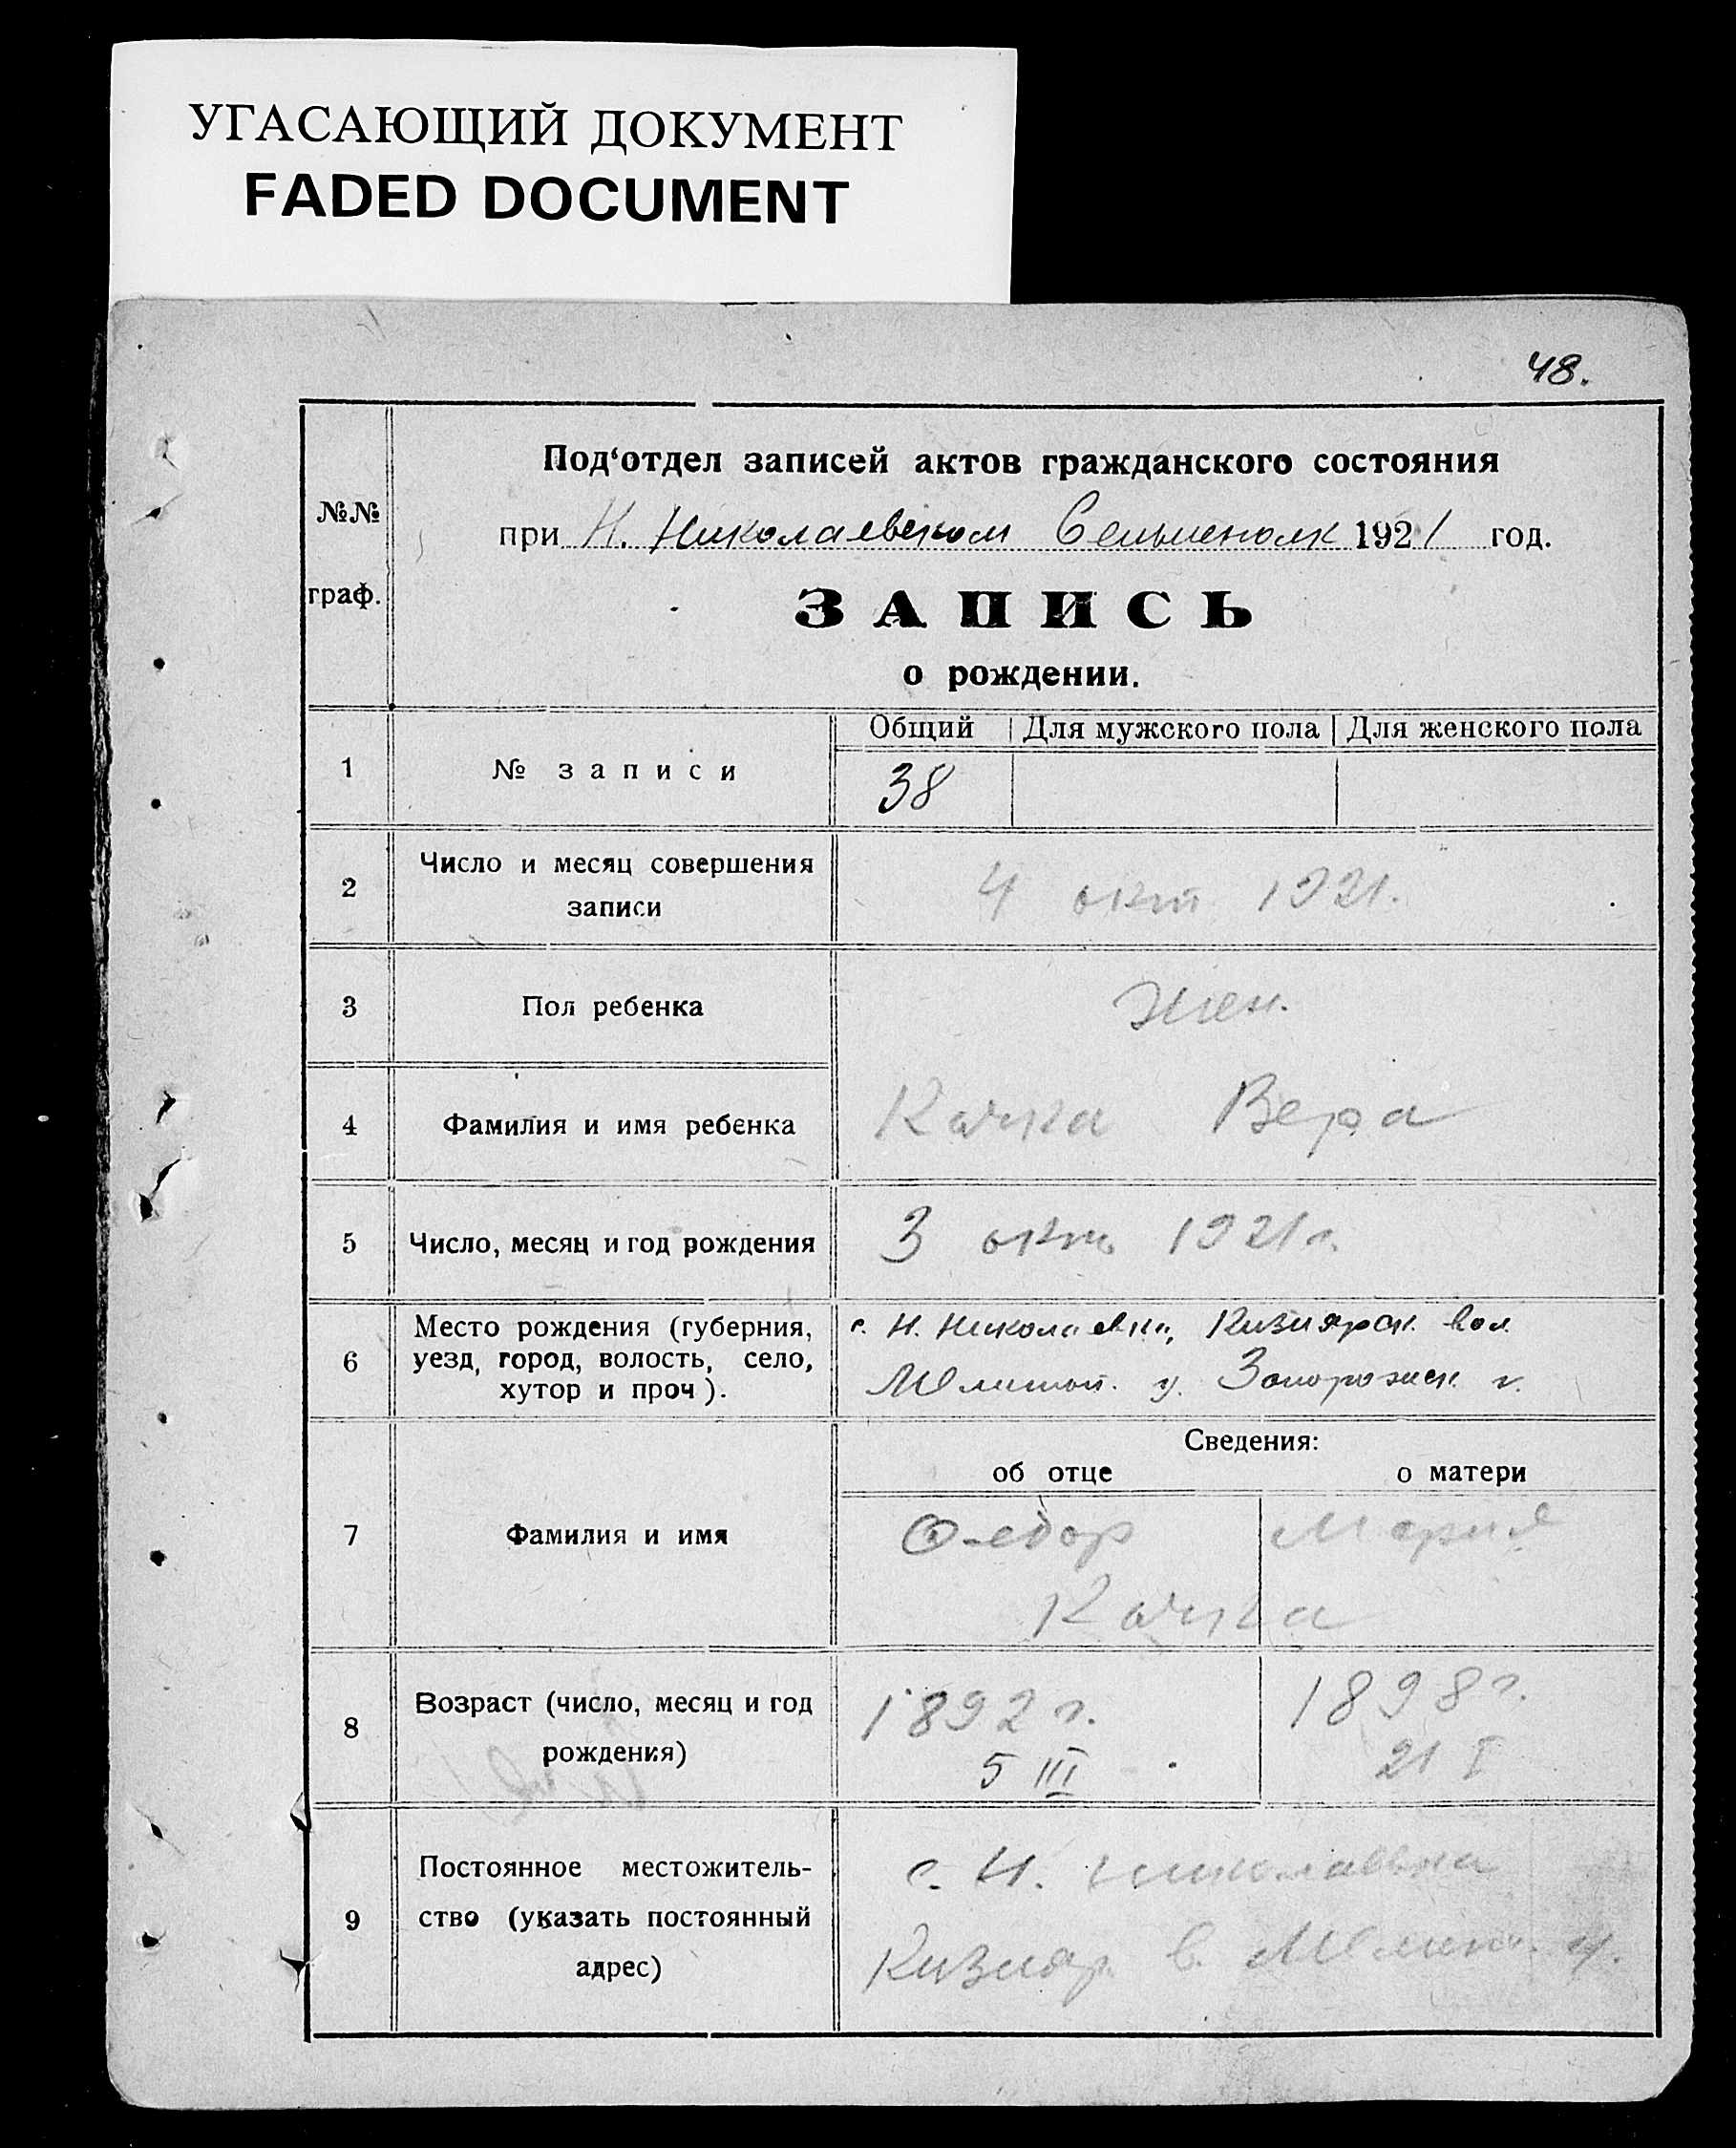 УГАСАЮЩИЙ ДОКУМЕНТ
FADED DOCUMENT
48.
№№
граф.
Под‘отдел записей актов гражданского состояния
при Н. Николаевском 1921 год.
ЗАПИСЬ
о рождении.
Общий Для мужского пола Для женского пола
1 № записи 38
2 Число и месяц совершения
записи
4 окт 1921.
3 Пол ребенка Жен.
4 Фамилия и имя ребенка Качка Вера
5 Число, месяц и год рождения 3 окт 1921 г.
6 Место рождения (губерния,
уезд, город, волость, село,
хутор и проч).
с. Н. Николаевка, Кизиярск. вол.
Мелитоп. у. Запорожск. г.
Сведения:
об отце о матери
7 Фамилия и имя
Федор Мария
Качка
8 Возраст (число, месяц и год
рождения)
1892 г. 1898 г.
5 III 21 I
9 Постоянное местожитель-
ство (указать постоянный
адрес)
с. Н. Николаевка
Кизияр. в. Мелит. у.